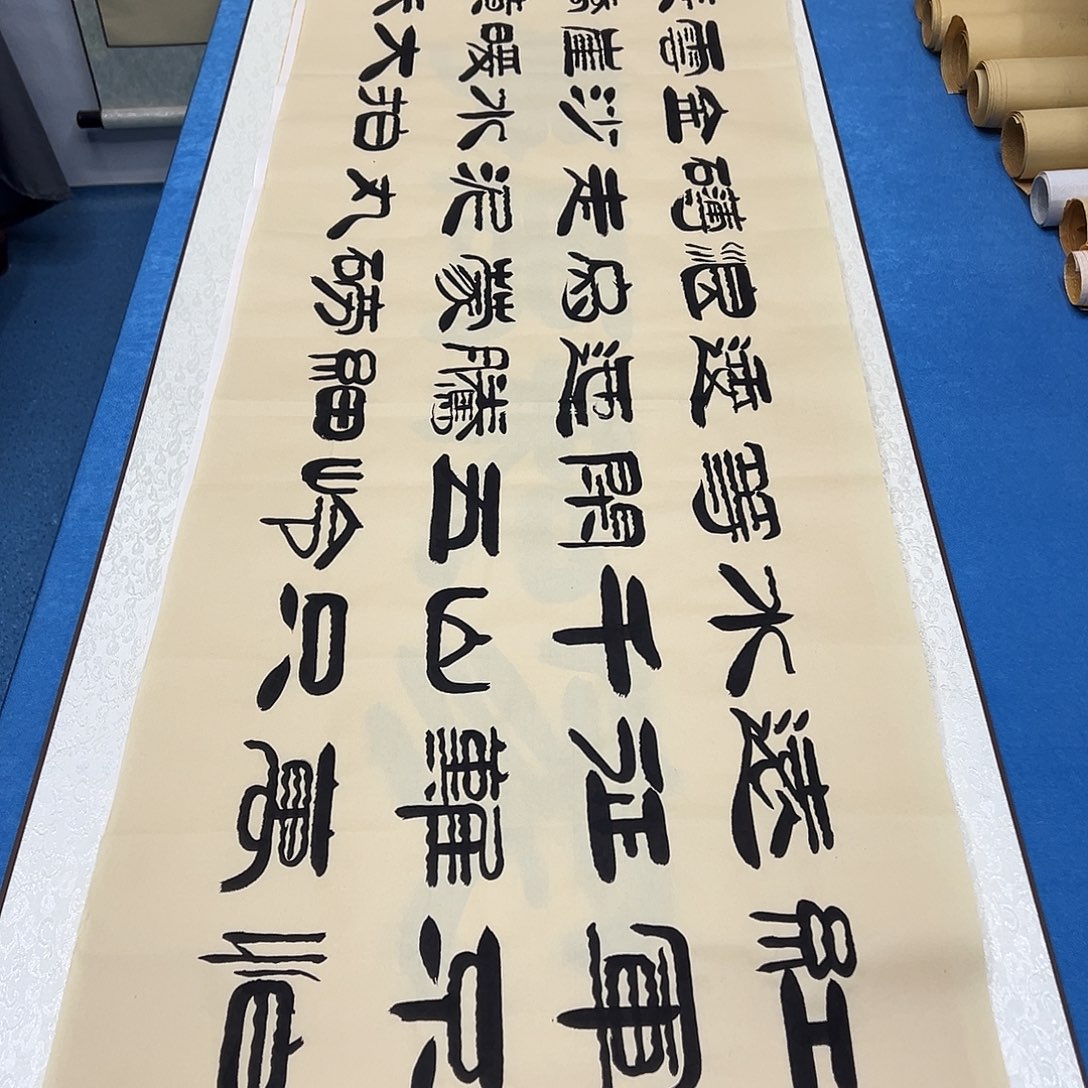 紅軍不怕
遠征難萬
水千山只
等閒五嶺
逶迤騰細
浪烏蒙磅
礴走泥丸
金沙水拍
雲崖暖大